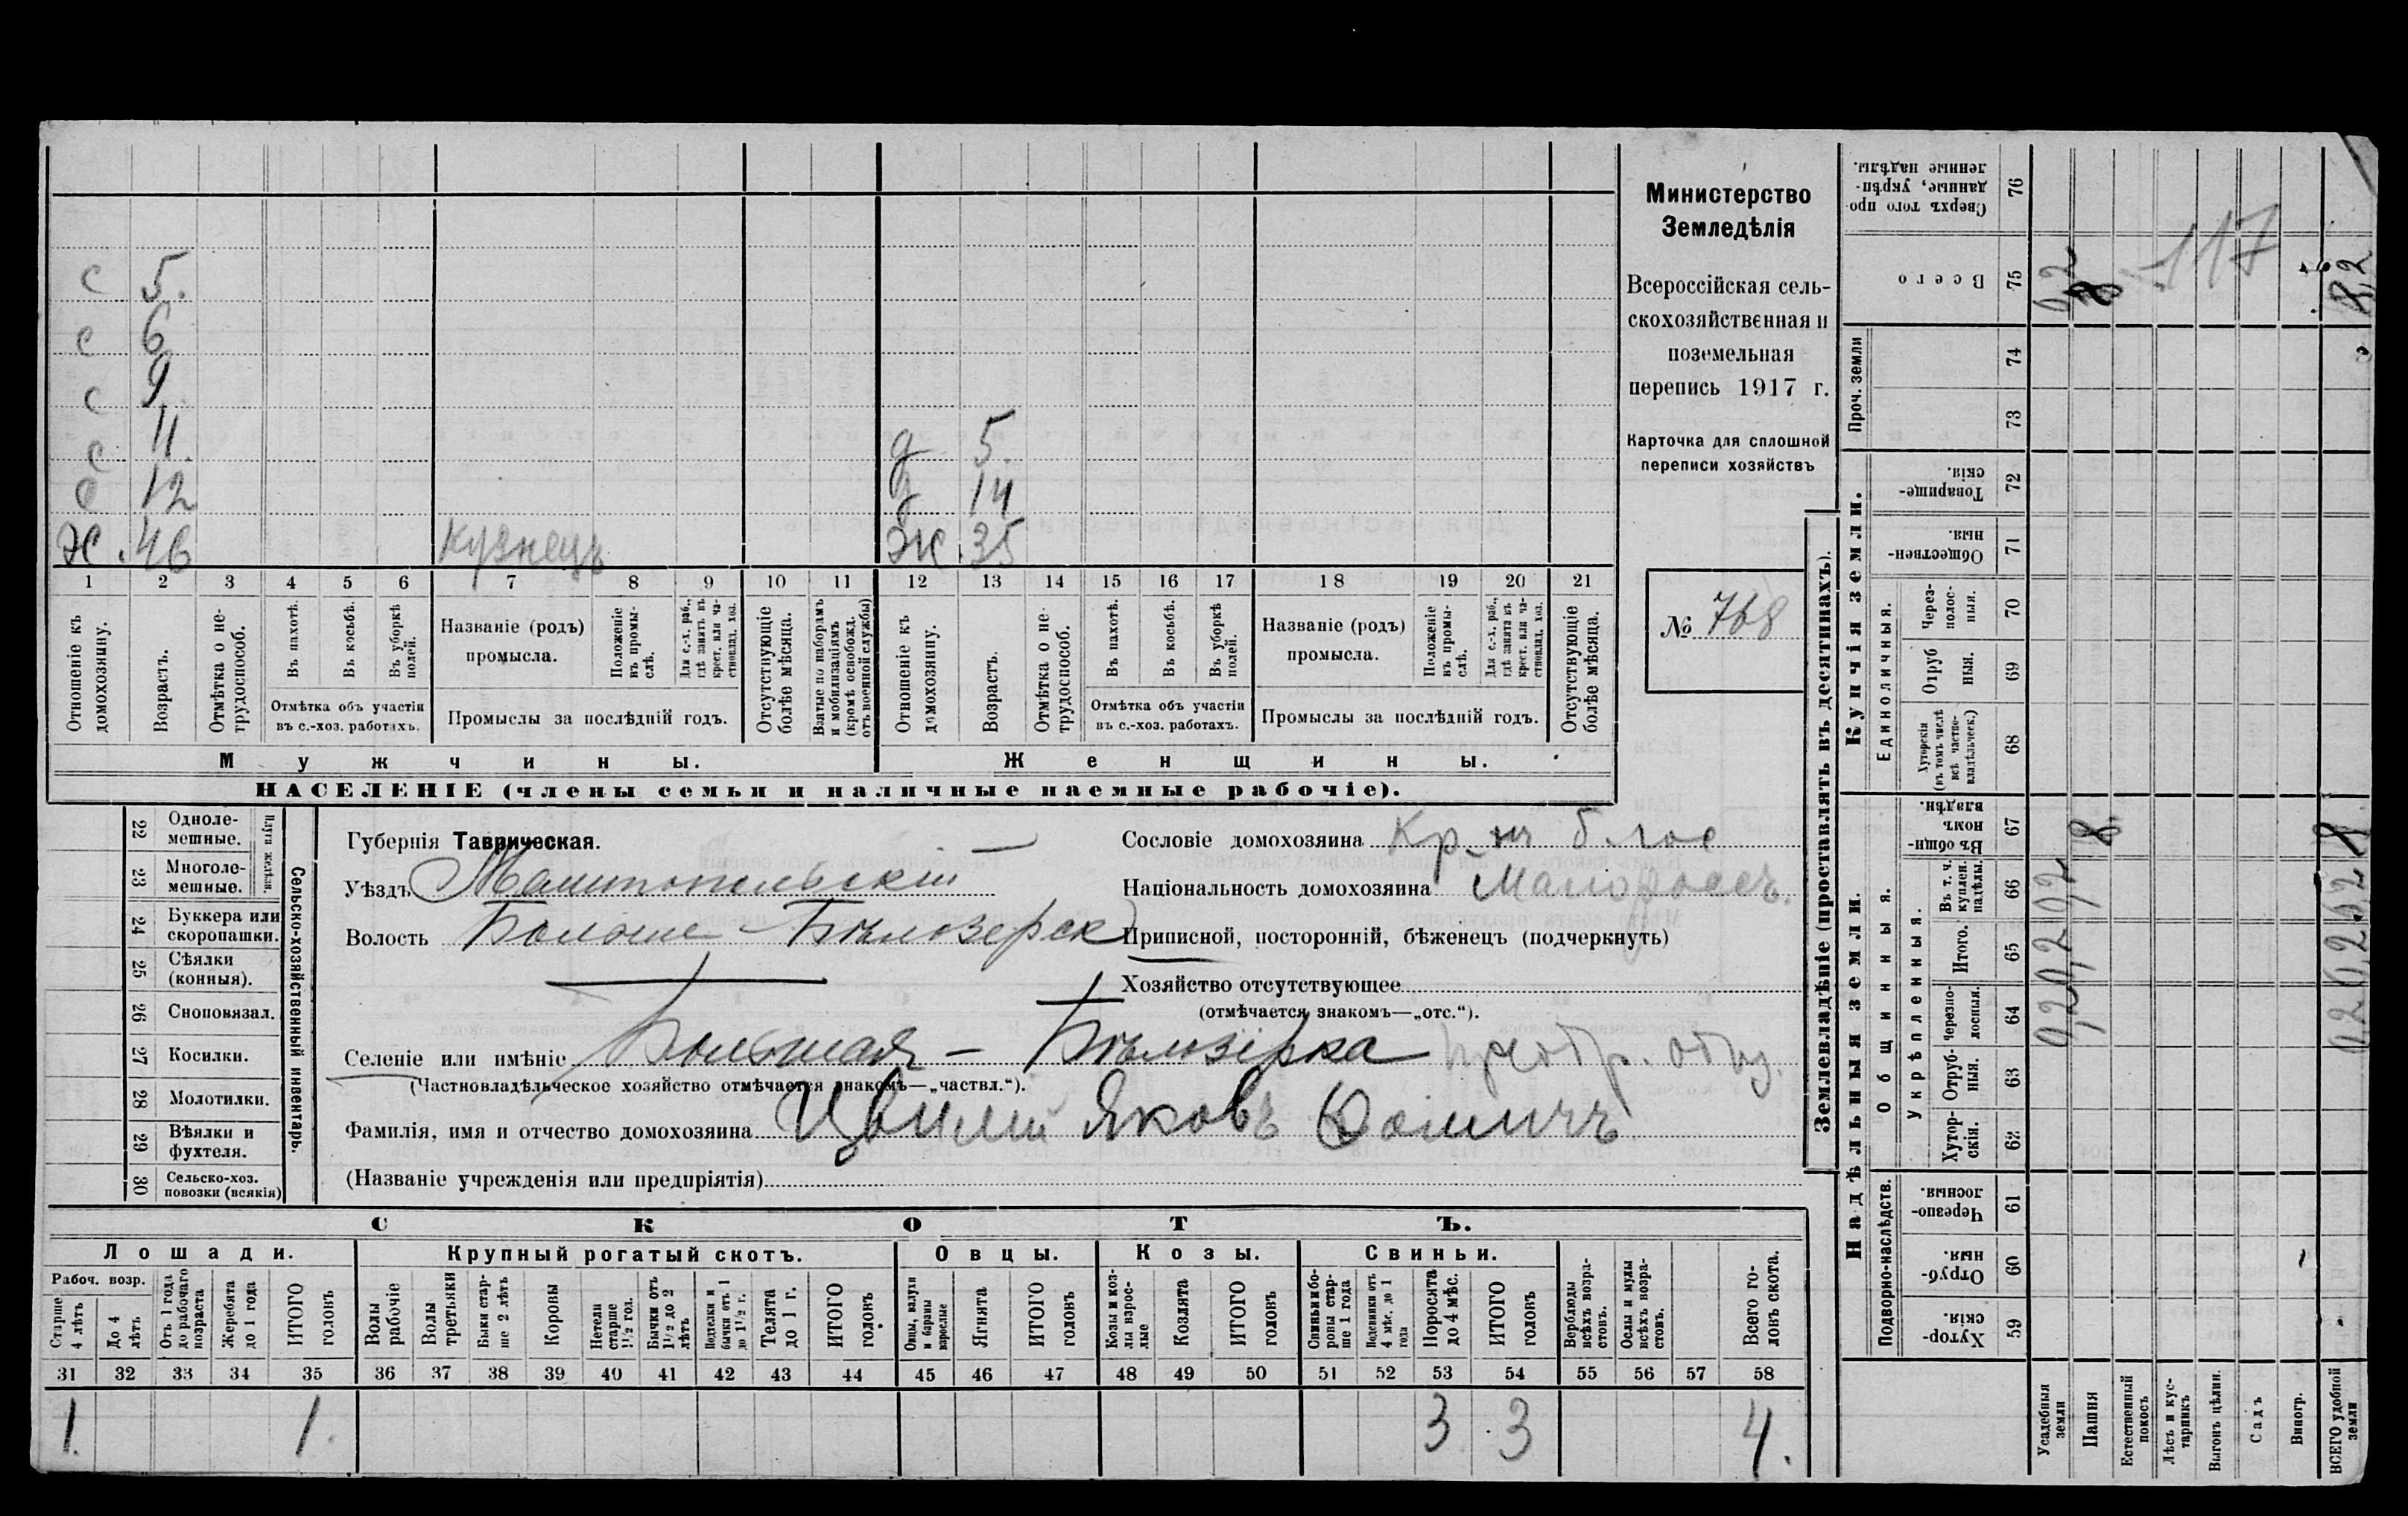 Министерство
Земледѣлія
Всероссійская сель-
скохозяйственная и
поземельная
перепись 1917 г.
Карточка для сплошной
переписи хозяйствъ
№ 768
с 5.
с 6
с 9
с 11.
с 12
Х. 46 кузнецъ
д 5.
д 14
Ж. 35
1 2 3 4 5 6 7 8 9 10 11 12 13 14 15 16 17 18 19 20 21
Отношеніе къ домохозяину.
Возрастъ.
Отмѣтка о не-трудоспособ.
Въ пахотѣ.
Въ косьбѣ.
Въ уборкѣ полей.
Отмѣтка объ участіи
въ с.-хоз. работахъ.
Названіе (родъ)
промысла.
Положеніе въ промы-слѣ.
Для с.-х. раб., гдѣ занятъ въ крест. или ча-стновлад. хоз.
Промыслы за послѣдній годъ.
Отсутствующіе болѣе мѣсяца.
Взятые по наборамъ и мобилизаціямъ (кромѣ освобожд. отъ военной службы)
Отношеніе къ домохозяину.
Возрастъ.
Отмѣтка о не-трудоспособ.
Въ пахотѣ.
Въ косьбѣ.
Въ уборкѣ полей.
Отмѣтка объ участіи
въ с.-хоз. работахъ.
Названіе (родъ)
промысла.
Положеніе въ промы-слѣ.
Для с.-х. раб., гдѣ занята въ крест. или ча-стновлад. хоз.
Промыслы за послѣдній годъ.
Отсутствующіе болѣе мѣсяца.
Мужчины.
Женщины.
НАСЕЛЕНІЕ (члены семьи и наличные наемные рабочіе).
Сельско-хозяйственный инвентарь.
Плуги желѣзн.
22 Одноле-мешные.
23 Многоле-мешные.
24 Буккера или скоропашки.
25 Сѣялки (конныя).
26 Сноповязал.
27 Косилки.
28 Молотилки.
29 Вѣялки и фухтеля.
30 Сельско-хоз. повозки (всякія)
Губернія Таврическая.
Уѣздъ Мелитопольскій
Волость Больше-Бѣлозерск
Селеніе или имѣніе Большая - Бѣлозерка
(Частновладѣльческое хозяйство отмѣчается знакомъ—„частвл.“).
Фамилія, имя и отчество домохозяина Яковъ
(Названіе учрежденія или предпріятія)
Сословіе домохозяина
Національность домохозяина Малороссъ.
Приписной, посторонній, бѣженецъ (подчеркнуть)
Хозяйство отсутствующее
(отмѣчается знакомъ—„отс.“).
СКОТЪ.
Лошади. Крупный рогатый скотъ. Овцы. Козы. Свиньи.
Рабоч. возр.
Старше 4 лѣтъ
До 4 лѣтъ
Отъ 1 года до рабочаго возраста
Жеребята до 1 года
ИТОГО головъ
Волы рабочіе
Волы третьяки
Быки стар-ше 2 лѣтъ
Коровы
Нетели старше 1 1/2 год.
Бычки отъ 1 1/2 до 2 лѣтъ
Подтелки и бычки отъ 1 до 1 1/2 г.
Телята до 1 г.
ИТОГО головъ
Овцы, валухи и бараны взрослые
Ягнята
ИТОГО головъ
Козы и коз-лы взрос-лые
Козлята
ИТОГО головъ
Свиньи и бо-ровы стар-ше 1 года
Подсвинки отъ 4 мѣс. до 1 года
Поросята до 4 мѣс.
ИТОГО головъ
Верблюды всѣхъ возра-стовъ.
Ослы и мулы всѣхъ возра-стовъ.
Всего го-ловъ скота.
31 32 33 34 35 36 37 38 39 40 41 42 43 44 45 46 47 48 49 50 51 52 53 54 55 56 57 58
1. 1. 3 3 4.
Землевладѣніе (проставлять въ десятинахъ).
Надѣльныя земли.
Подворно-наслѣдств.
Хутор-скія. 59
Отруб-ныя. 60
Черезпо-лосныя. 61
Общинныя.
Укрѣпленныя.
Хутор-скія. 62
Отруб-ныя. 63
Черезпо-лосныя. 64
Итого. 65
Въ т. ч. куплен. надѣлы. 66
Въ общи-номъ владѣн. 67
Купчія земли.
Единоличныя.
Хуторскія (въ томъ числѣ всѣ частно-владѣльческ.) 68
Отруб ныя. 69
Через-полос-ныя. 70
Обществен-ныя. 71
Товарище-скія. 72
Проч. земли
73 74
Всего 75
Сверхъ того про-данные, укрѣп-ленные надѣлы. 76
Усадебныя земли 0,2 0,2 0,2 0,2
Пашня 8. 8
Естественный покосъ
Лѣсъ и кус-тарникъ
Выгонъ цѣлин.
Садъ
Виногр.
ВСЕГО удобной земли 0,2 0,2 0,2 8. 8,2
117